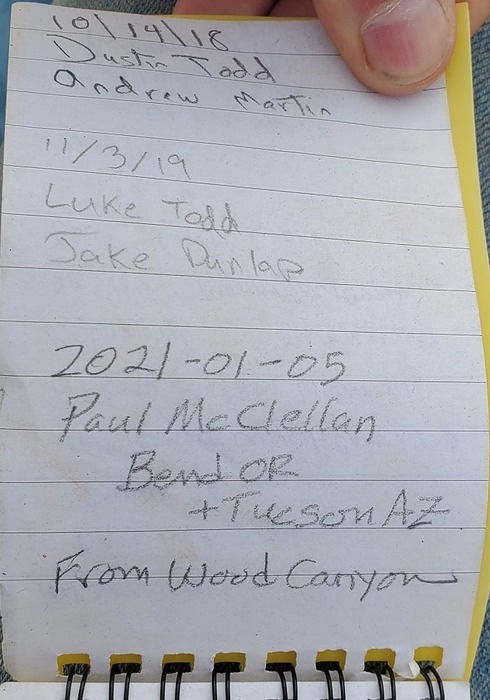 10\14\18
Dustin Todd
Andrew Martin
11/3/19
Luke Todd
Jake Dunlap
2021-01-05
Paul McClellan
Bend OR
+Tucson AZ
From Wood Canyon